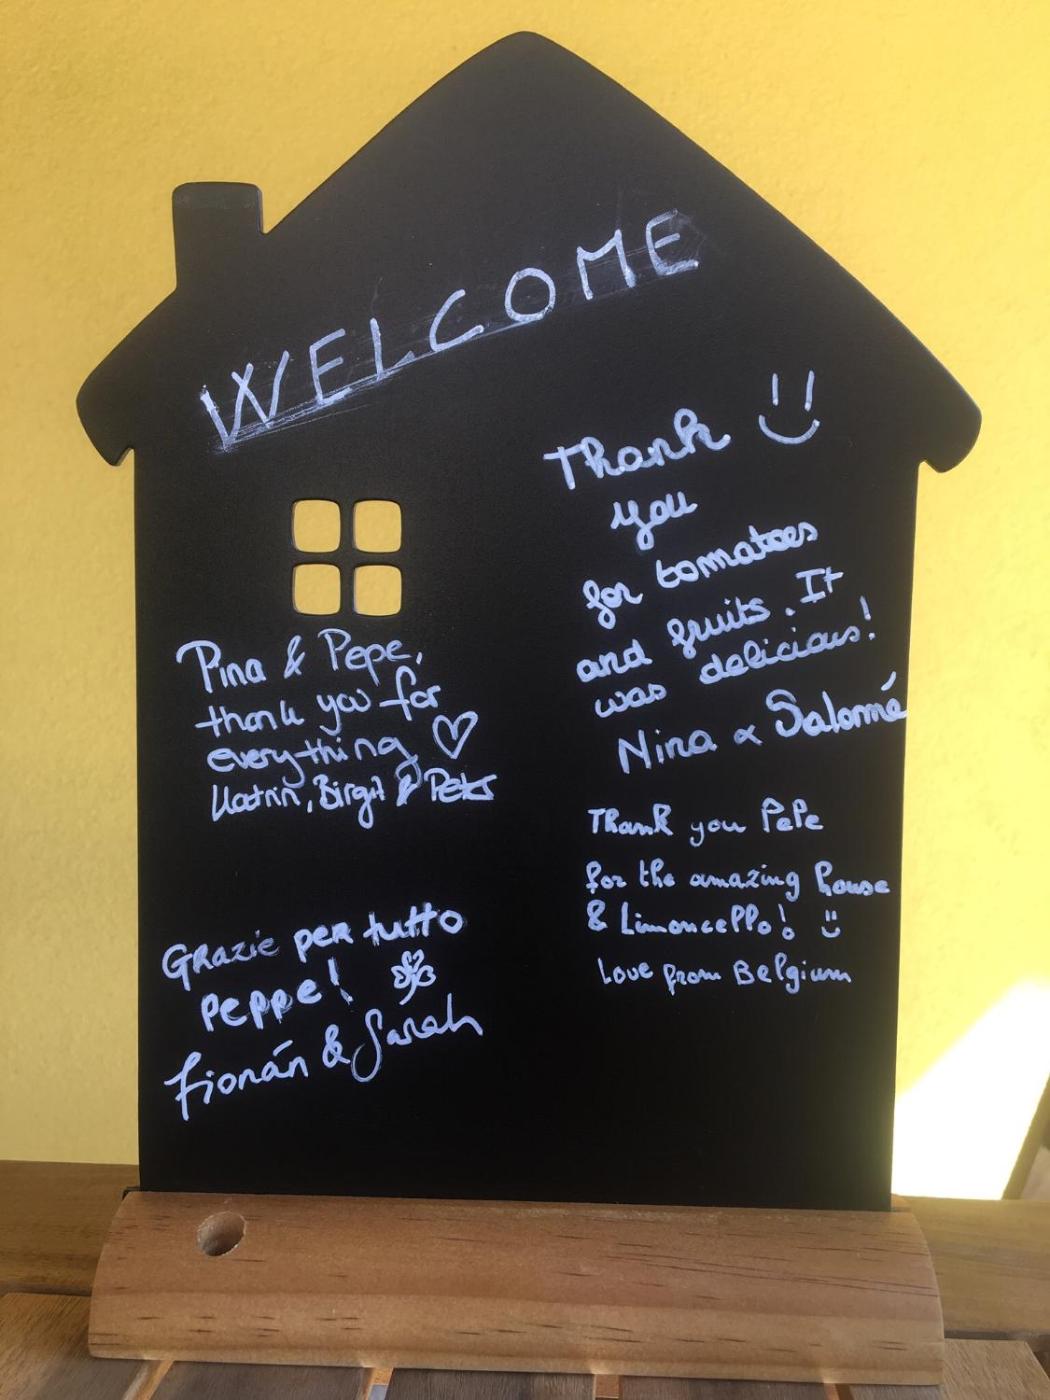 WELCOME
Pina & Pepe,
thank you for
everything ♡
Katrin, Birgit &
Grazie per tutto
peppe!
Fionán & Sarah
Thank
you
for tomatoes
and fruits. It
was delicious!
Nina & Salomé
Thank you PePe
for the amazing house
& Limoncello! :)
Love from Belgium